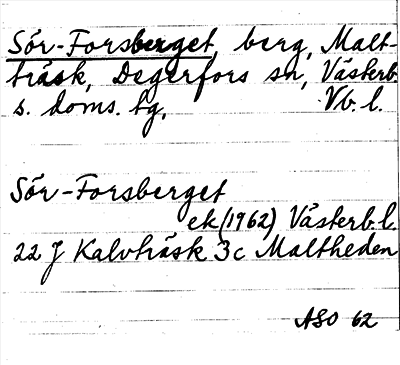 Sör-Forsberget, berg, Malt-
träsk, Degerfors sn, Västerb.
s. doms. tg, Vb. l.
Sör-Forsberget
ek (1962) Västerb. l.
22 J Kalvträsk 3c Maltheden
ASO 62